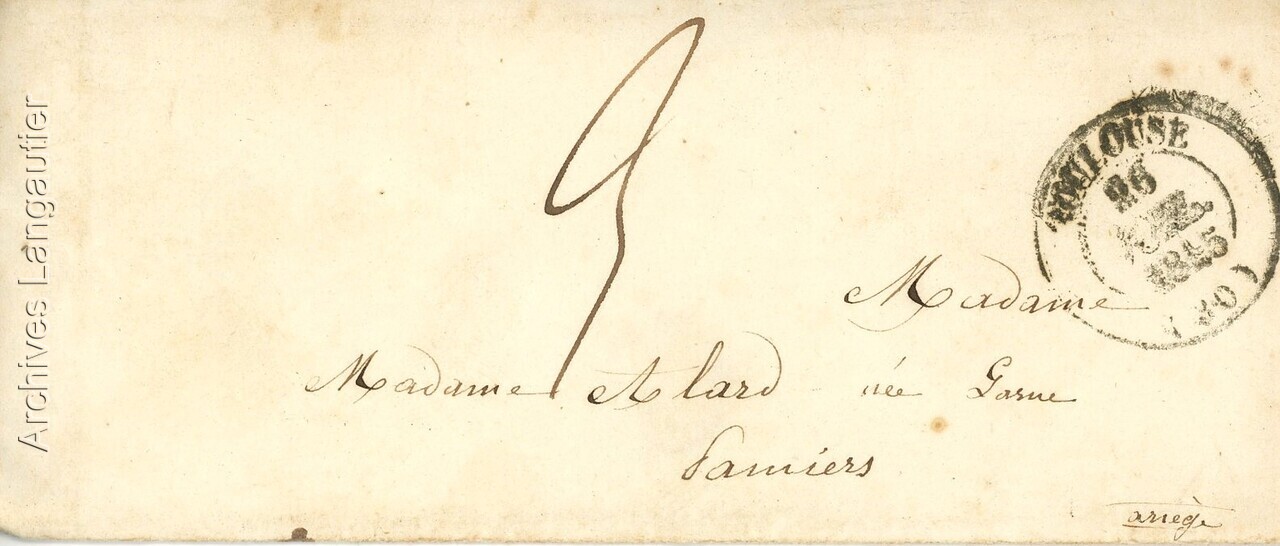 Archives Langautier
9
TOULOUSE
26
1845
(30)
Madame
Madame Alard née Garne
Pamiers
ariège